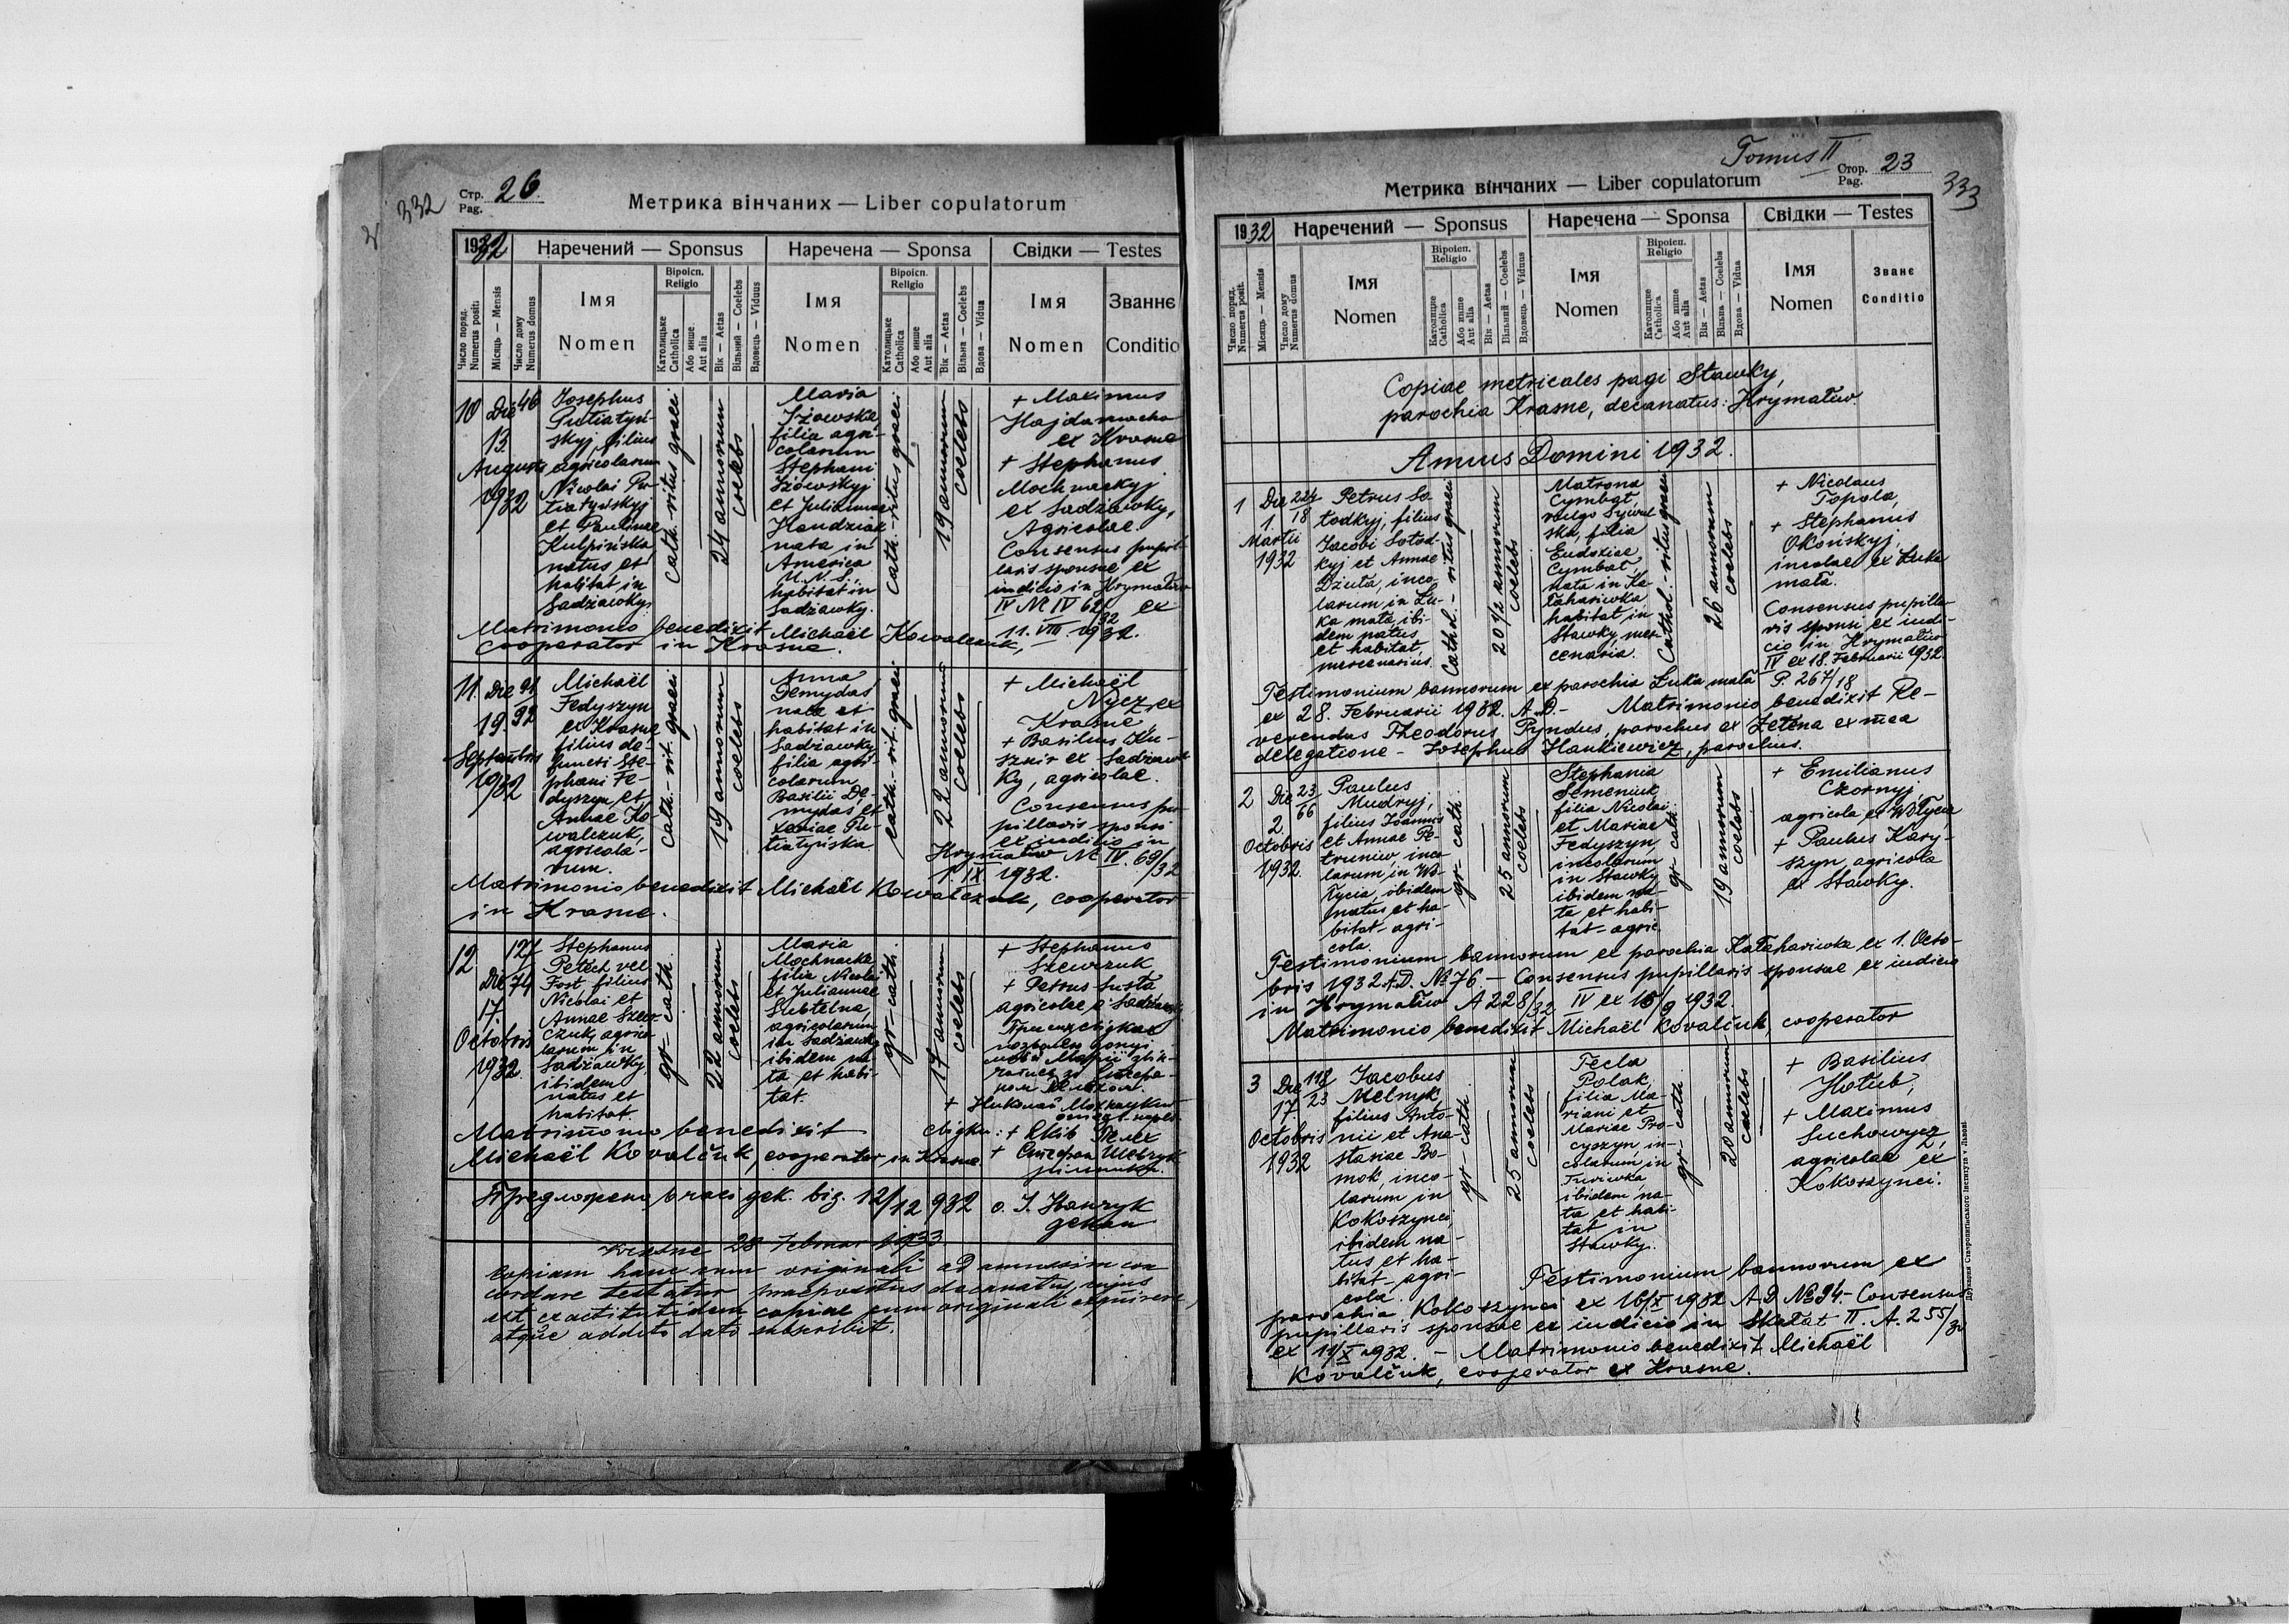 332
Стр. Pag. 26.
Метрика вінчаних — Liber copulatorum
1932
Наречений — Sponsus
Наречена — Sponsa
Свідки — Testes
Число поряд. Numerus posit.
Місяць — Mensis
Число дому Numerus domus
Імя
Nomen
Віроісп. Religio
Католицьке Catholica
Або инше Aut alia
Вік — Aetas
Вільний — Coelebs
Вдовець — Viduus
Імя
Nomen
Віроісп. Religio
Католицьке Catholica
Або инше Aut alia
Вік — Aetas
Вільна — Coelebs
Вдова — Vidua
Імя
Nomen
Званнє
Conditio
10
Die
13.
Augusti
1932
46
Josephus
Putiatyń-
skyj, filius
agricolarum
Nicolai Pu-
tiatyńskyj
et Paulinae
Kulpińska
natus et
habitat in
Sadzawky.
cath.-ritus graeci
24 annorum
coelebs
Maria
Iżowska
filia agri-
colarum
Stephani
Iżowskyj
et Juliannae
Handziak
nata in
America
U.N.S.,
habitat in
Sadzawky.
cath.-ritus graeci
19 annorum
coelebs
+ Maximus
Hajdamacha
ex Krasne
+ Stephanus
Mochnackyj
ex Sadzawky,
Agricolae.
Consensus pupil-
laris sponsae ex
indicio in Hrymałiw
IV Nr IV 62/32 ex
11. VIII 1932.
Matrimonio benedixit Michaël Kowalczuk,
cooperator in Krasne.
11.
Die
19.
Septembris
1932
91
92
Michaël
Fedyszyn
ex Krasne
filius de-
functi Ste-
phani Fe-
dyszyn et
Annae Ko-
walczuk,
agricola-
rum.
cath.-rit. graeci
19 annorum
coelebs
Anna
Demydas
nata et
habitat in
Sadzawky
filia agri-
colarum
Basilii De-
mydas et
Xeniae Pu-
tiatyńska
cath.-rit. graeci
22 annorum
coelebs
+ Michaël
Nycz, ex
Krasne,
+ Basilius Ku-
sznir ex Sadzaw-
ky, agricolae.
Consensus pu-
pillaris sponsi
ex indicio in
Hrymałiw Nr IV. 69/32
1. IX 1932.
Matrimonio benedixit Michaël Kowalczuk, cooperator
in Krasne.
12
Die
17.
Octobris
1932.
127
74
Stephanus
Petech vel
Fost, filius
Nicolai et
Annae Szew-
czuk, agrico-
larum in
Sadzawky,
ibidem
natus et
habitat
gr-cath.
22 annorum
coelebs
Maria
Mochnacka,
filia Nicolai
et Juliannae
Subtelna,
agricolarum
in Sadzawky
ibidem na-
ta et habi-
tat.
gr-cath.
17 annorum
coelebs
+ Stephanus
Szewczuk,
+ Petrus Susta
agricolae a Sadzawky
Matrimonio benedixit
Michaël Kovalčuk, cooperator in Krasne.
Предложено, в раси дек. виз. 12/12 932 о. І.
декан
Krasne 28 Februar 1933
Copiam hanc cum originali ad amussim con
cordare testatur praepositus decanatus cujus
est exactitutidem copiae cum originali exquirere,
atque addito dato subscribit.
Tomus II
Стор. Pag. 23
333
Метрика вінчаних — Liber copulatorum
1932
Наречений — Sponsus
Наречена — Sponsa
Свідки — Testes
Число поряд. Numerus posit.
Місяць — Mensis
Число дому Numerus domus
Імя
Nomen
Віроісп. Religio
Католицке Catholica
Або инше Aut alia
Вік — Aetas
Вільний — Coelebs
Вдовець — Viduus
Імя
Nomen
Віроісп. Religio
Католицке Catholica
Або инше Aut alia
Вік — Aetas
Вільна — Coelebs
Вдова — Vidua
Імя
Nomen
Званє
Conditio
Copiae metricales pagi Stawky,
parochia Krasne, decanatus: Hrymałiw.
Annus Domini 1932.
1
Die
1.
Martii
1932
224
18
Petrus So-
łodkyj, filius
Jacobi Sołod-
kyj et Annae
Dżuta, inco-
larum in Łu-
ka mała, ibi-
dem natus
et habitat,
mercenarius.
Cathol.-ritus graeci
20 1/2 annorum
coelebs
Matrona
Cymbał,
filia
Eudoxiae
Cymbał,
nata in Ka-
łahariwka
habitat in
Stawky, mer-
cenaria.
Cathol.-ritus graeci
26 annorum
coelebs
+ Nicolaus
Topola,
+ Stephanus
Okońskyj,
incolae ex Łuka
mała.
Consensus pupilla-
ris sponsi ex indi-
cio in Hrymałiw
IV ex 18. Februarii 1932.
P. 267/18
Testimonium bannorum ex parochia Łuka mała
ex 28. Februarii 1932. A.D.- Matrimonio benedixit Re-
verendus Theodorus Pyndus, parochus ex Zełena ex mea
delegatione - Josephus Hankiewicz, parochus.
2
Die
2.
Octobris
1932.
23
66
Paulus
Mudryj,
filius Joannis
et Annae Pe-
truniw, inco-
larum in Wo-
łycia, ibidem
natus et ha-
bitat - agri-
cola.
gr-cath.
25 annorum
coelebs
Stephania
Semeniuk,
filia Nicolai
et Mariae
Fedyszyn,
incolarum
in Stawky
ibidem na-
ta et habi-
tat - agric.
gr cath.
19 annorum
coelebs
+ Emilianus
Czornyj,
agricola ex Wołycia
+ Paulus Kary-
szyn, agricola
ex Stawky.
Testimonium bannorum ex parochia Kałahariwka ex 1. Octo-
bris 1932 A.D. № 76 - Consensus pupillaris sponsae ex indicio
in Hrymałiw A 228/32 IV ex 16/9 1932.
Matrimonio benedixit Michaël Kovalčuk, cooperator
3
Die
17.
Octobris
1932
118
23
Jacobus
Melnyk,
filius Anto-
nii et Ana-
stasiae Bo-
mok, inco-
larum in
Kokoszynci,
ibidem na-
tus et ha-
bitat - agri-
cola.
gr-cath
25 annorum
coelebs
Tecla
Polak,
filia Ma-
riani et
Mariae Pro-
cyszyn, in-
colarum in
ibidem na-
ta et habi-
tat in
Stawky.
gr-cath
20 annorum
coelebs
+ Basilius
Hołub,
+ Maximus
Suchowycz,
agricolae ex
Kokoszynci.
Testimonium bannorum ex
parochia Kokoszynci ex 16/X 1932 A.D № 94.- Consensus
pupillaris sponsae ex indicio in Skałat II. A. 255/32
ex 11/X 1932. - Matrimonio benedixit Michaël
Kovalčuk, cooperator ex Krasne.
Друкарня Ставропигійського Інститута у Львові